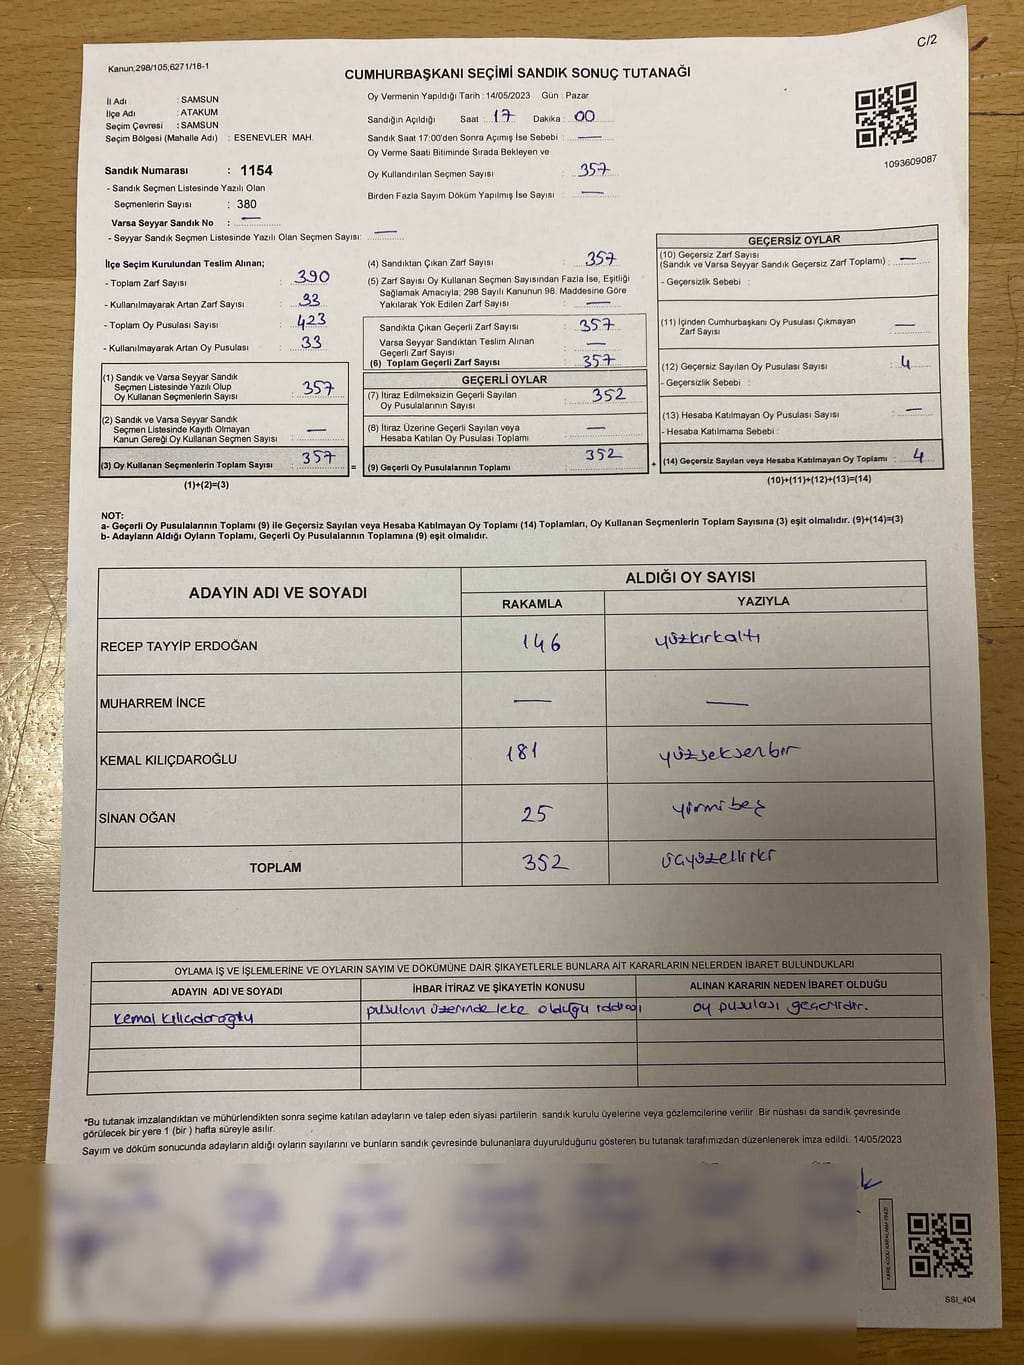 C/2
Kanun;298/105;6271/18-1
CUMHURBAŞKANI SEÇİMİ SANDIK SONUÇ TUTANAĞI
İl Adı : SAMSUN
İlçe Adı : ATAKUM
Seçim Çevresi : SAMSUN
Seçim Bölgesi (Mahalle Adı) : ESENEVLER MAH.
Oy Vermenin Yapıldığı Tarih : 14/05/2023 Gün : Pazar
Sandığın Açıldığı Saat : 17 Dakika : 00
Sandık Saat 17:00'den Sonra Açımış İse Sebebi : —
Oy Verme Saati Bitiminde Sırada Bekleyen ve
Oy Kullandırılan Seçmen Sayısı : 357
Birden Fazla Sayım Döküm Yapılmış İse Sayısı : —
1093609087
Sandık Numarası : 1154
- Sandık Seçmen Listesinde Yazılı Olan
Seçmenlerin Sayısı : 380
Varsa Seyyar Sandık No : —
- Seyyar Sandık Seçmen Listesinde Yazılı Olan Seçmen Sayısı: —
İlçe Seçim Kurulundan Teslim Alınan;
- Toplam Zarf Sayısı : 390
- Kullanılmayarak Artan Zarf Sayısı : 33
- Toplam Oy Pusulası Sayısı : 423
- Kullanılmayarak Artan Oy Pusulası : 33
(1) Sandık ve Varsa Seyyar Sandık
Seçmen Listesinde Yazılı Olup
Oy Kullanan Seçmenlerin Sayısı : 357
(2) Sandık ve Varsa Seyyar Sandık
Seçmen Listesinde Kayıtlı Olmayan
Kanun Gereği Oy Kullanan Seçmen Sayısı : —
(3) Oy Kullanan Seçmenlerin Toplam Sayısı : 357
(1)+(2)=(3)
(4) Sandıktan Çıkan Zarf Sayısı : 357
(5) Zarf Sayısı Oy Kullanan Seçmen Sayısından Fazla İse, Eşitliği
Sağlamak Amacıyla; 298 Sayılı Kanunun 98. Maddesine Göre
Yakılarak Yok Edilen Zarf Sayısı : —
Sandıkta Çıkan Geçerli Zarf Sayısı : 357
Varsa Seyyar Sandıktan Teslim Alınan
Geçerli Zarf Sayısı : —
(6) Toplam Geçerli Zarf Sayısı : 357
GEÇERLİ OYLAR
(7) İtiraz Edilmeksizin Geçerli Sayılan
Oy Pusulalarının Sayısı : 352
(8) İtiraz Üzerine Geçerli Sayılan veya
Hesaba Katılan Oy Pusulası Toplamı : —
= (9) Geçerli Oy Pusulalarının Toplamı : 352
GEÇERSİZ OYLAR
(10) Geçersiz Zarf Sayısı
(Sandık ve Varsa Seyyar Sandık Geçersiz Zarf Toplamı) : —
- Geçersizlik Sebebi :
(11) İçinden Cumhurbaşkanı Oy Pusulası Çıkmayan
Zarf Sayısı : —
(12) Geçersiz Sayılan Oy Pusulası Sayısı : 4
- Geçersizlik Sebebi :
(13) Hesaba Katılmayan Oy Pusulası Sayısı : —
- Hesaba Katılmama Sebebi :
+ (14) Geçersiz Sayılan veya Hesaba Katılmayan Oy Toplamı : 4
(10)+(11)+(12)+(13)=(14)
NOT:
a- Geçerli Oy Pusulalarının Toplamı (9) ile Geçersiz Sayılan veya Hesaba Katılmayan Oy Toplamı (14) Toplamları, Oy Kullanan Seçmenlerin Toplam Sayısına (3) eşit olmalıdır. (9)+(14)=(3)
b- Adayların Aldığı Oyların Toplamı, Geçerli Oy Pusulalarının Toplamına (9) eşit olmalıdır.
ADAYIN ADI VE SOYADI ALDIĞI OY SAYISI
RAKAMLA YAZIYLA
RECEP TAYYİP ERDOĞAN 146 yüzkırkaltı
MUHARREM İNCE — —
KEMAL KILIÇDAROĞLU 181 yüzseksenbir
SİNAN OĞAN 25 yirmibeş
TOPLAM 352 üçyüzelliiki
OYLAMA İŞ VE İŞLEMLERİNE VE OYLARIN SAYIM VE DÖKÜMÜNE DAİR ŞİKAYETLERLE BUNLARA AİT KARARLARIN NELERDEN İBARET BULUNDUKLARI
ADAYIN ADI VE SOYADI İHBAR İTİRAZ VE ŞİKAYETİN KONUSU ALINAN KARARIN NEDEN İBARET OLDUĞU
Kemal Kılıçdaroğlu pusulanın üzerinde leke olduğu iddiası oy pusulası geçerlidir.
*Bu tutanak imzalandıktan ve mühürlendikten sonra seçime katılan adayların ve talep eden siyasi partilerin sandık kurulu üyelerine veya gözlemcilerine verilir Bir nüshası da sandık çevresinde
görülecek bir yere 1 (bir ) hafta süreyle asılır.
Sayım ve döküm sonucunda adayların aldığı oyların sayılarını ve bunların sandık çevresinde bulunanlara duyurulduğunu gösteren bu tutanak tarafımızdan düzenlenerek imza edildi. 14/05/2023
SSI_404